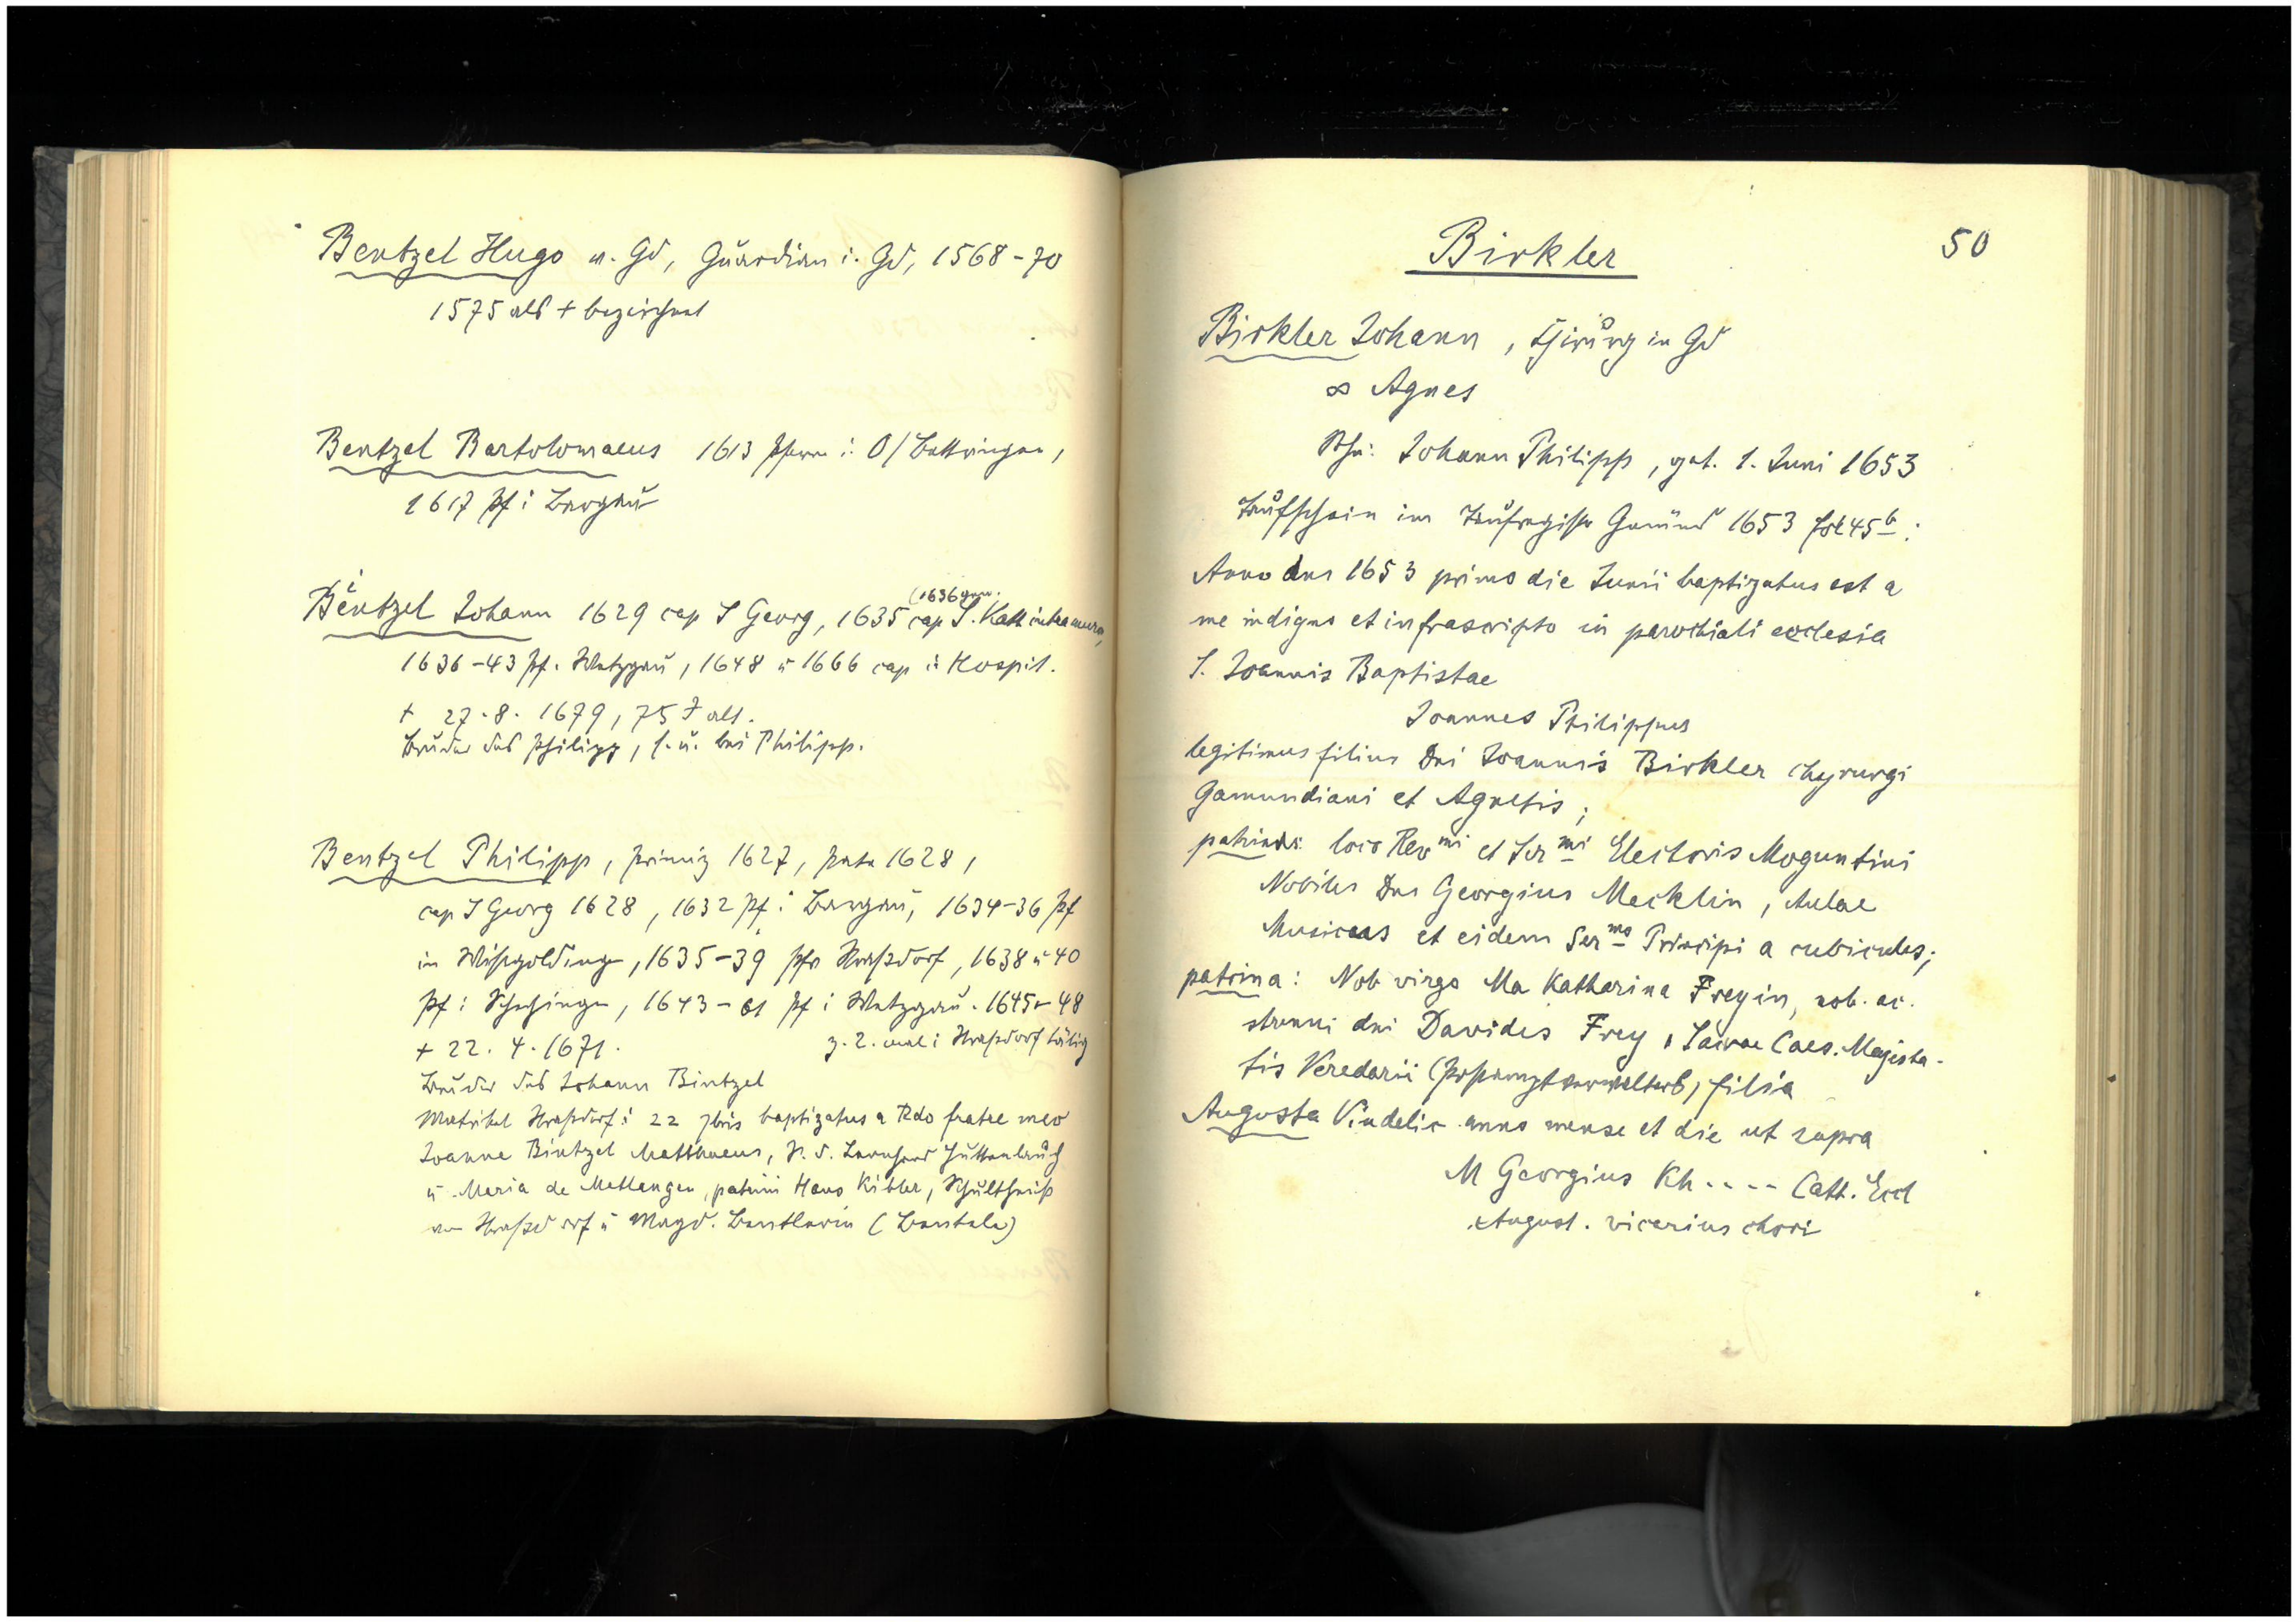 Bentzel Hugo v. Gd, Guardian i. Gd, 1568-70
1575 als + bezeichnet
Bentzel Bartolomaeus 1613 Pfarrer i. O/Bettringen,
1617 Pf i Bargau
i
(1636 gen.
Bentzel Johann 1629 cap S Georg, 1635 cap S. Kath intra muros,
1636-43 Pf. Wetzgau, 1648 u 1666 cap i. Hospit.
+ 27.8.1679, 75 J alt.
Bruder des Philipp, s. u. bei Philipp.
Bentzel Philipp, Primiz 1627, 1628,
cap S Georg 1628, 1632 Pf i Bargau, 1634-36 Pf
in Wißgoldingen, 1635-39 Pfr Straßdorf, 1638 u 40
Pf i Schechingen, 1643-61 Pf i Wetzgau. 1645-48
+ 22.4.1671. z. 2. mal i Straßdorf tätig
Bruder des Johann Bintzel
Matrikel Straßdorf: 22 7bris baptizatus a Rdo fratre meo
Joanne Bintzel Matthaeus, S. d. Leonhard Huttenlauch
u. Maria de Metlangen, patrini Hans Kibler, Schultheiß
von Straßdorf u Magd. Bentlerin (Bentele)
50
Birkler
Birkler Johann, Chirurg in Gd
∞ Agnes
Sohn: Johann Philipp, get. 1. Juni 1653
Taufschein im Taufregister Gmünd 1653 fol 45b:
Anno dns 1653 primo die Junii baptizatus est a
me indigno et infrascripto in parochiali ecclesia
S. Joannis Baptistae
Joannes Philippus
legitimus filius Dni Joannis Birkler chyrurgi
Gamundiani et Agnetis;
patrinus: loco Revmi et Sermi Electoris Moguntini
Nobilis Dns Georgius Mecklin, Aulae
Musicus et eidem Sermo Principi a cubiculis;
patrina: Nob virgo Ma Katharina Freyin, nob. ac.
strenui dni Davidis Frey, Sacrae Caes. Majesta-
tis Veredarii (Postamptverwalters) filia
Augusta Vindelic anno mense et die ut supra
M Georgius Kh---- Cath. Eccl
August. vicarius chori